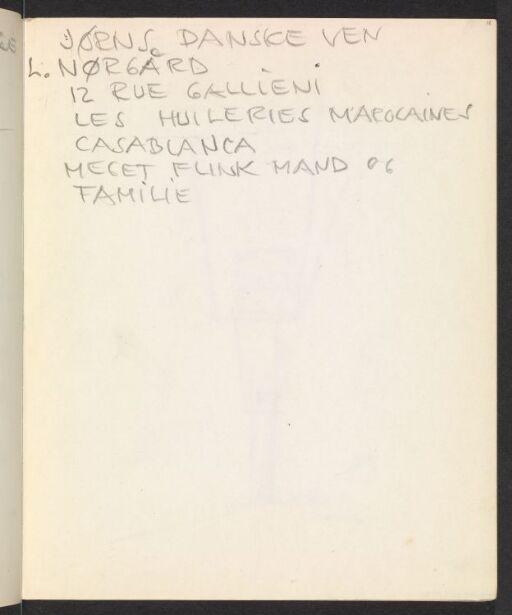 JØRNS DANSKE VEN
L. NØRGÅRD
12 RUE GALLIENI
LES HUILERIES MAROCAINES
CASABLANCA
MEGET FLINK MAND OG
FAMILIE